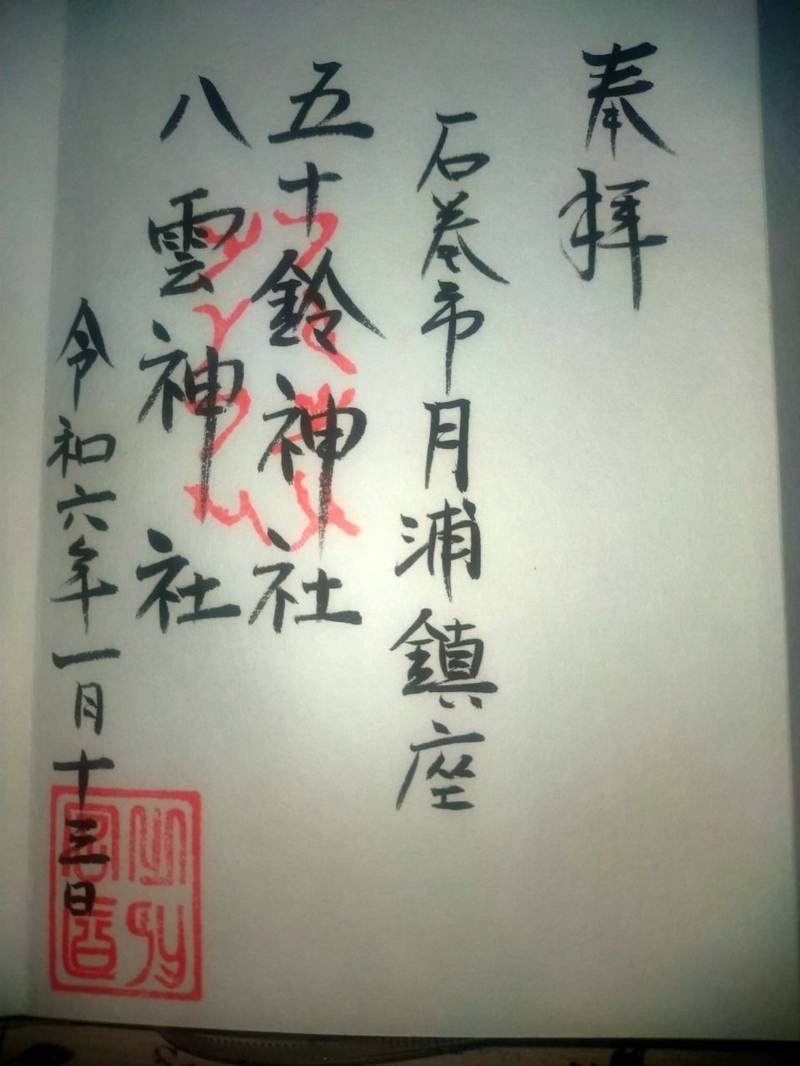 奉拝
石巻市月浦鎮座
五十鈴神社
八雲神社
令和六年一月十三日